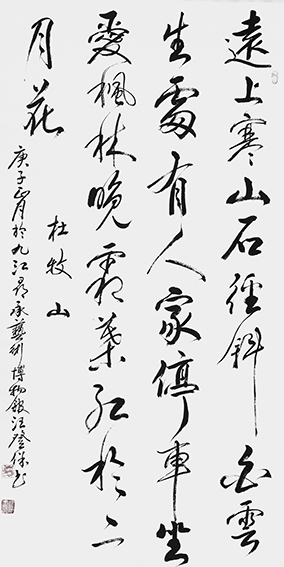 遠上寒山石徑斜白雲
生處有人家停車坐
愛楓林晚霜葉紅於二
月花
杜牧山
庚子月於九江承藝術博物館汪登保书